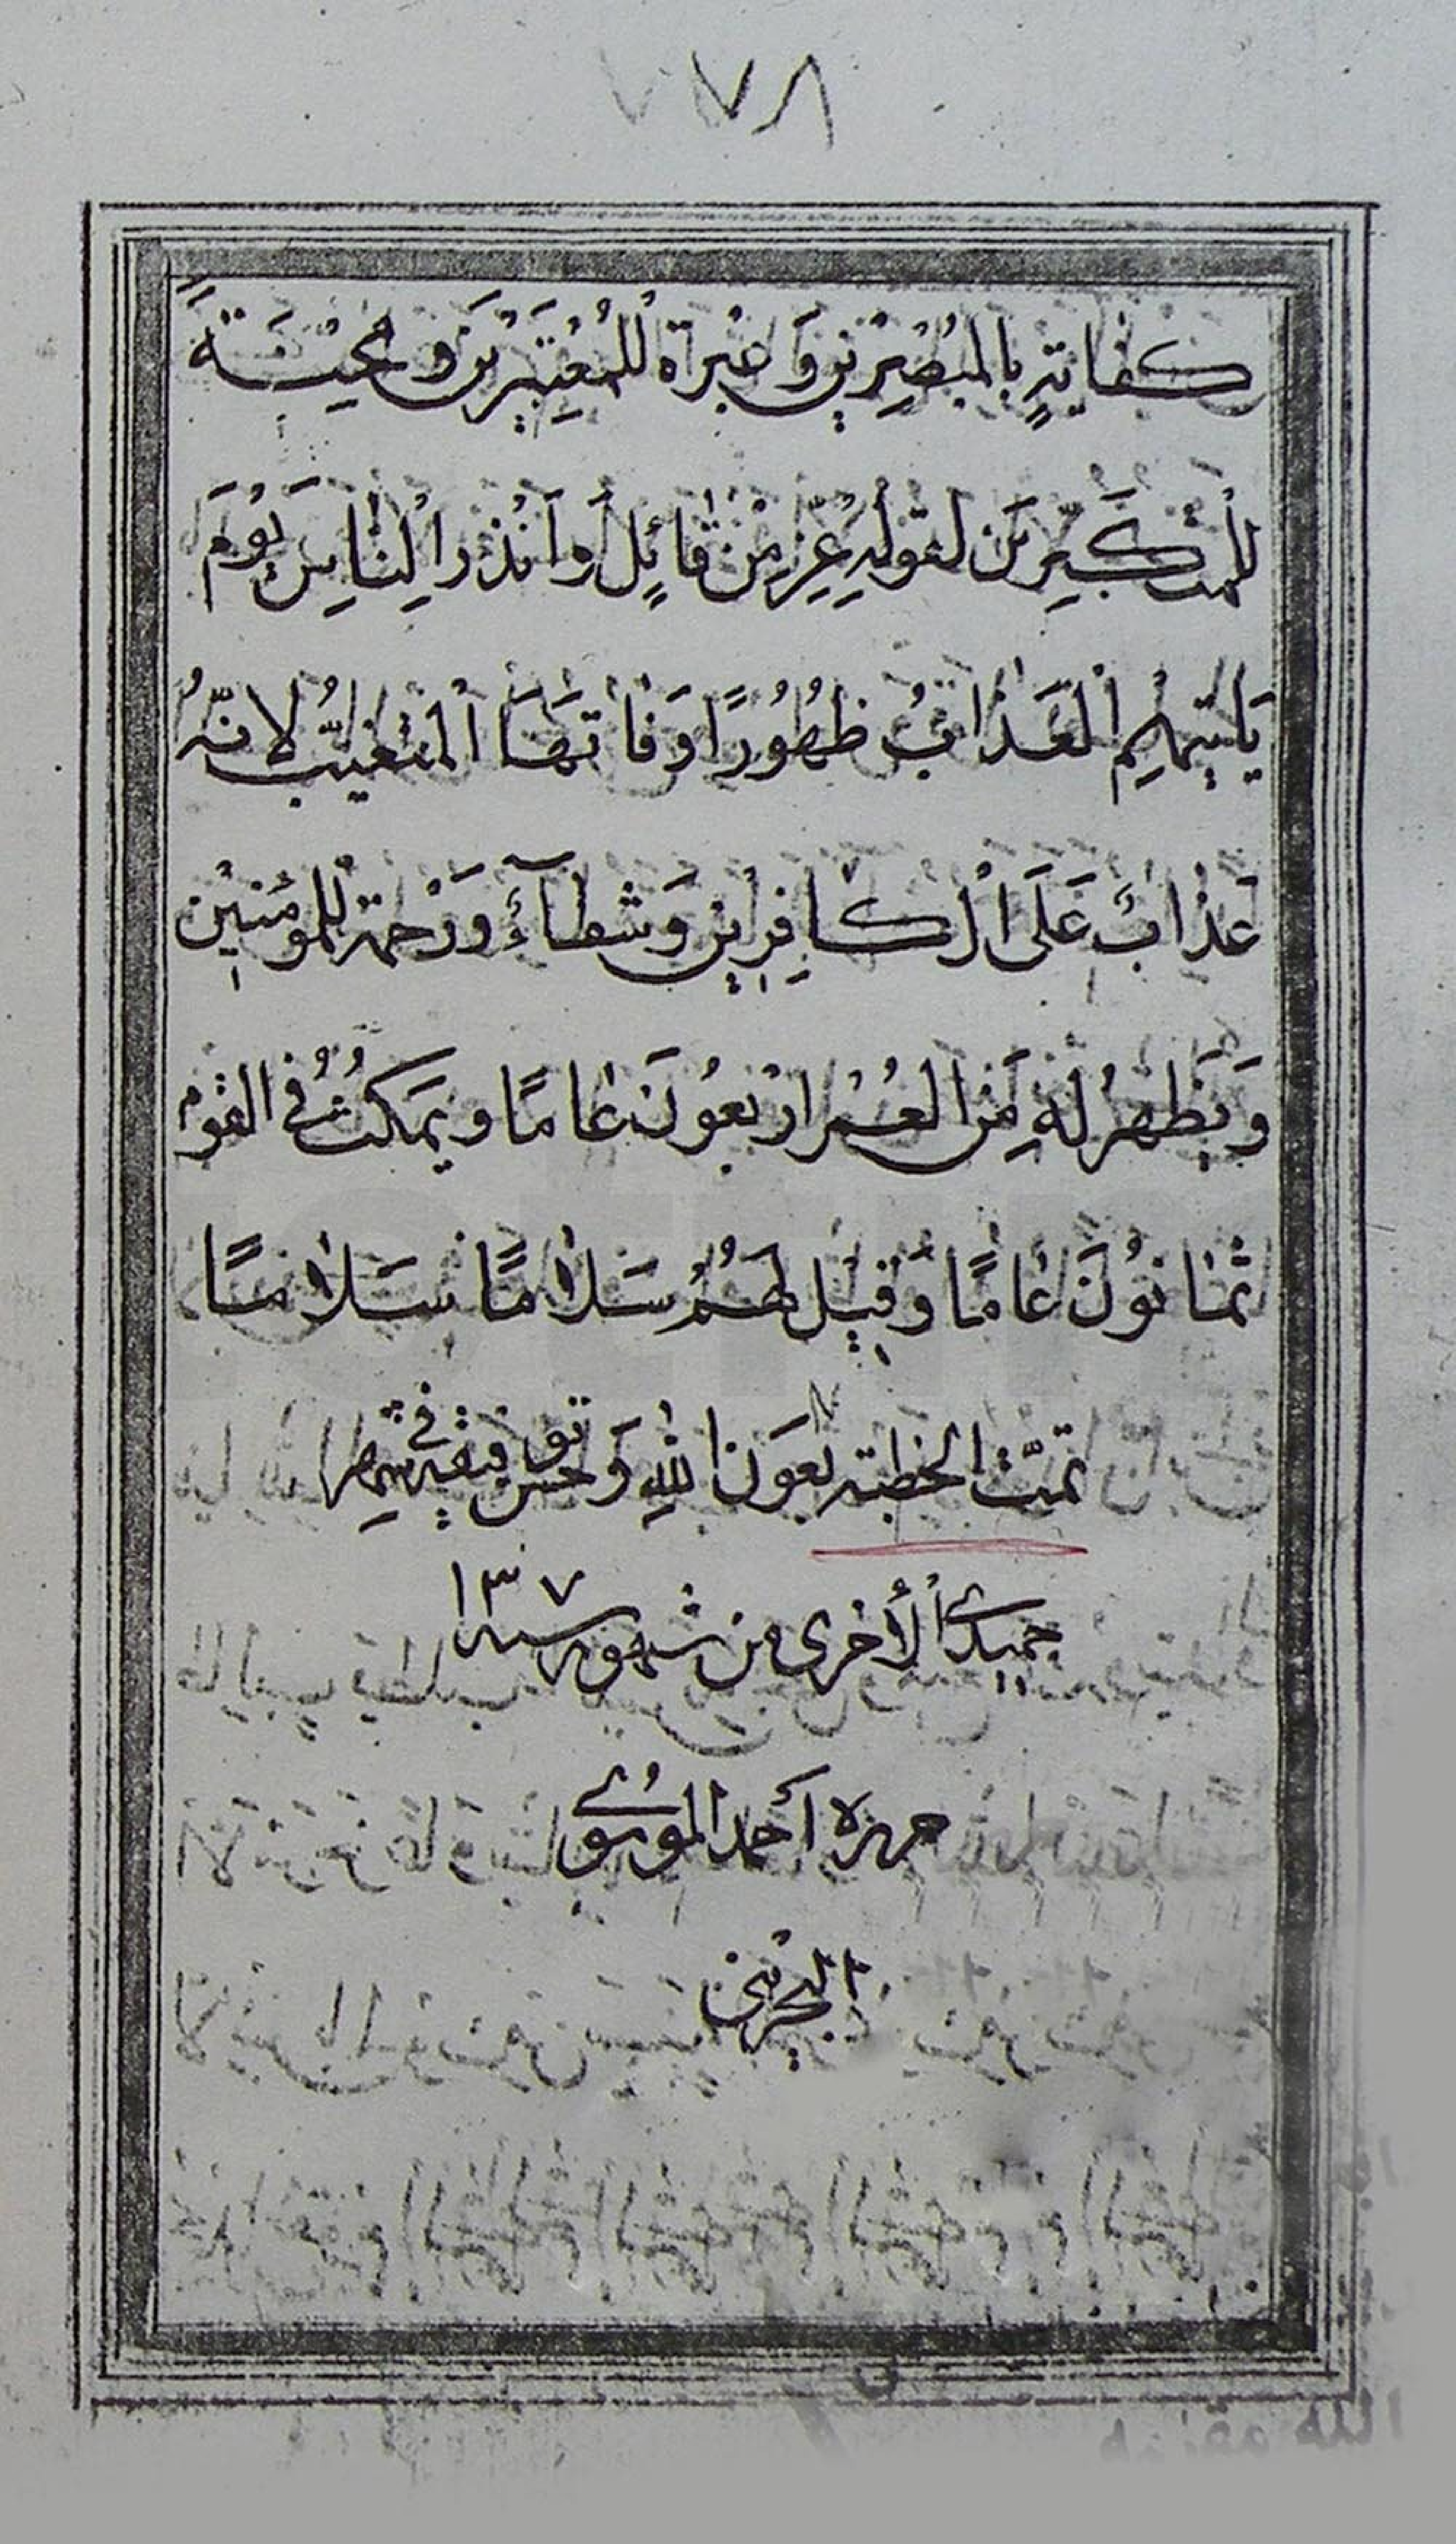 ٧٧٨
كفايةٍ بالمُبْصِرِيْنِ وَ عِبْرَة لْلمُعْتَبِرِيْنَ و مُحِيْتَةً
للْمتكَبِّرِيْنَ لقولِهِ عِزِ مِنْ قائِل وَ اَنْذر الِناسِ يَوْمَ
يَاتيْهِم اْلعَذابُ ظهُوْرًا وَ فاتهَا المتغيبُّ لانّهُ
عَذابٌ عَلَى اْلكافِرِيْن وَ شطآءُ وَرَحمة لْلمومَنِيْن
وَ يَظهرُ لهِ مِنَ العُمْر اَرْبعُونَ عامًا و يمَكثُ في القوْم
ثمانوُنَ عَامًا وَ قِيْل لهَمُ سَلامًا سَلامًا
تمَّت الخطبَة بعَون اللهِ وَ حسن توفيقه في شهر
جميدىَ الأخرى من شهور سنه ١٣٧
حمزه أحمد الموسُوى
البحريني